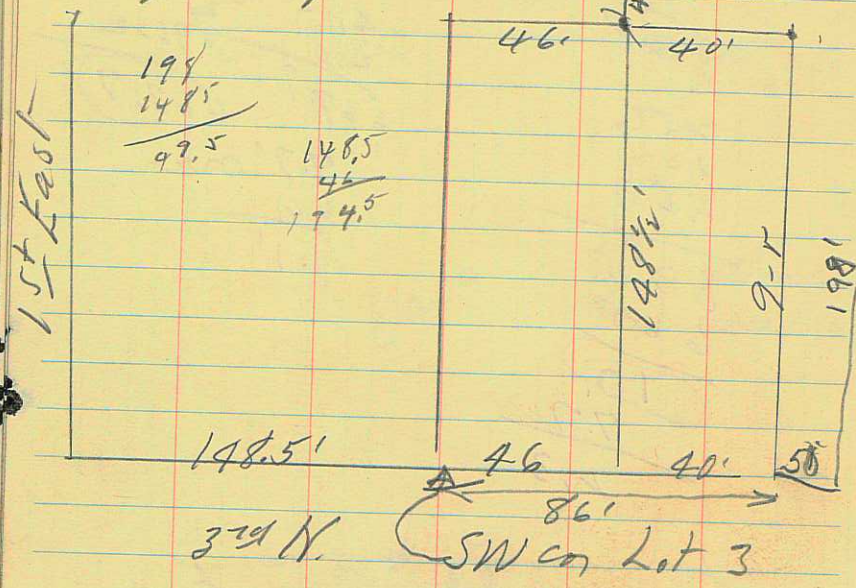 46'
40'
198
148 5
49.5
148.5
46
194.5
1st East
148 1/2'
9-5
198'
148.5'
46
40'
86'
3rd N.
SW cor Lot 3